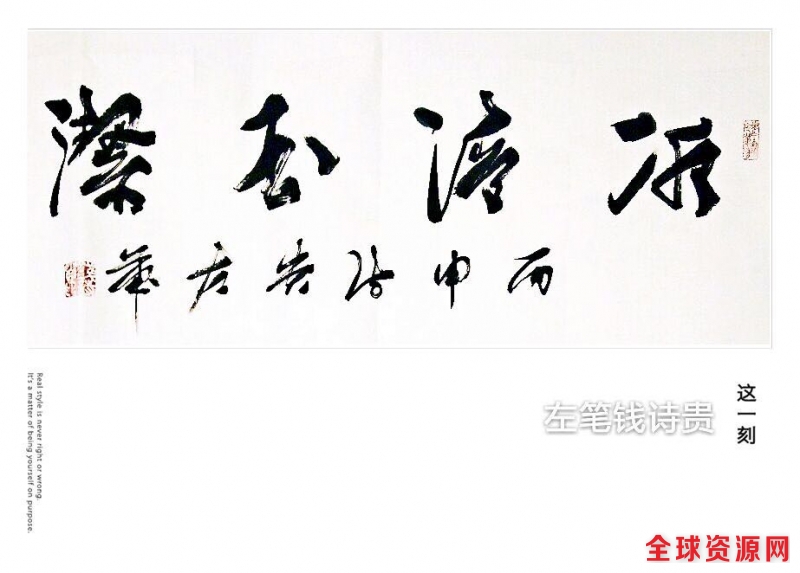 冰清玉潔
丙申诗贵左筆
这一刻
左笔钱诗贵
Real style is never right or wrong.
It's a matter of being yourself on purpose.
全球资源网